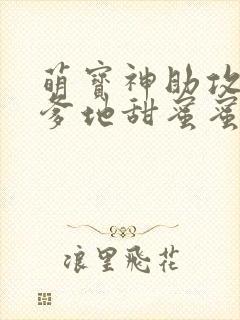 萌寶神助攻
爹地甜蜜蜜
浪里飛花